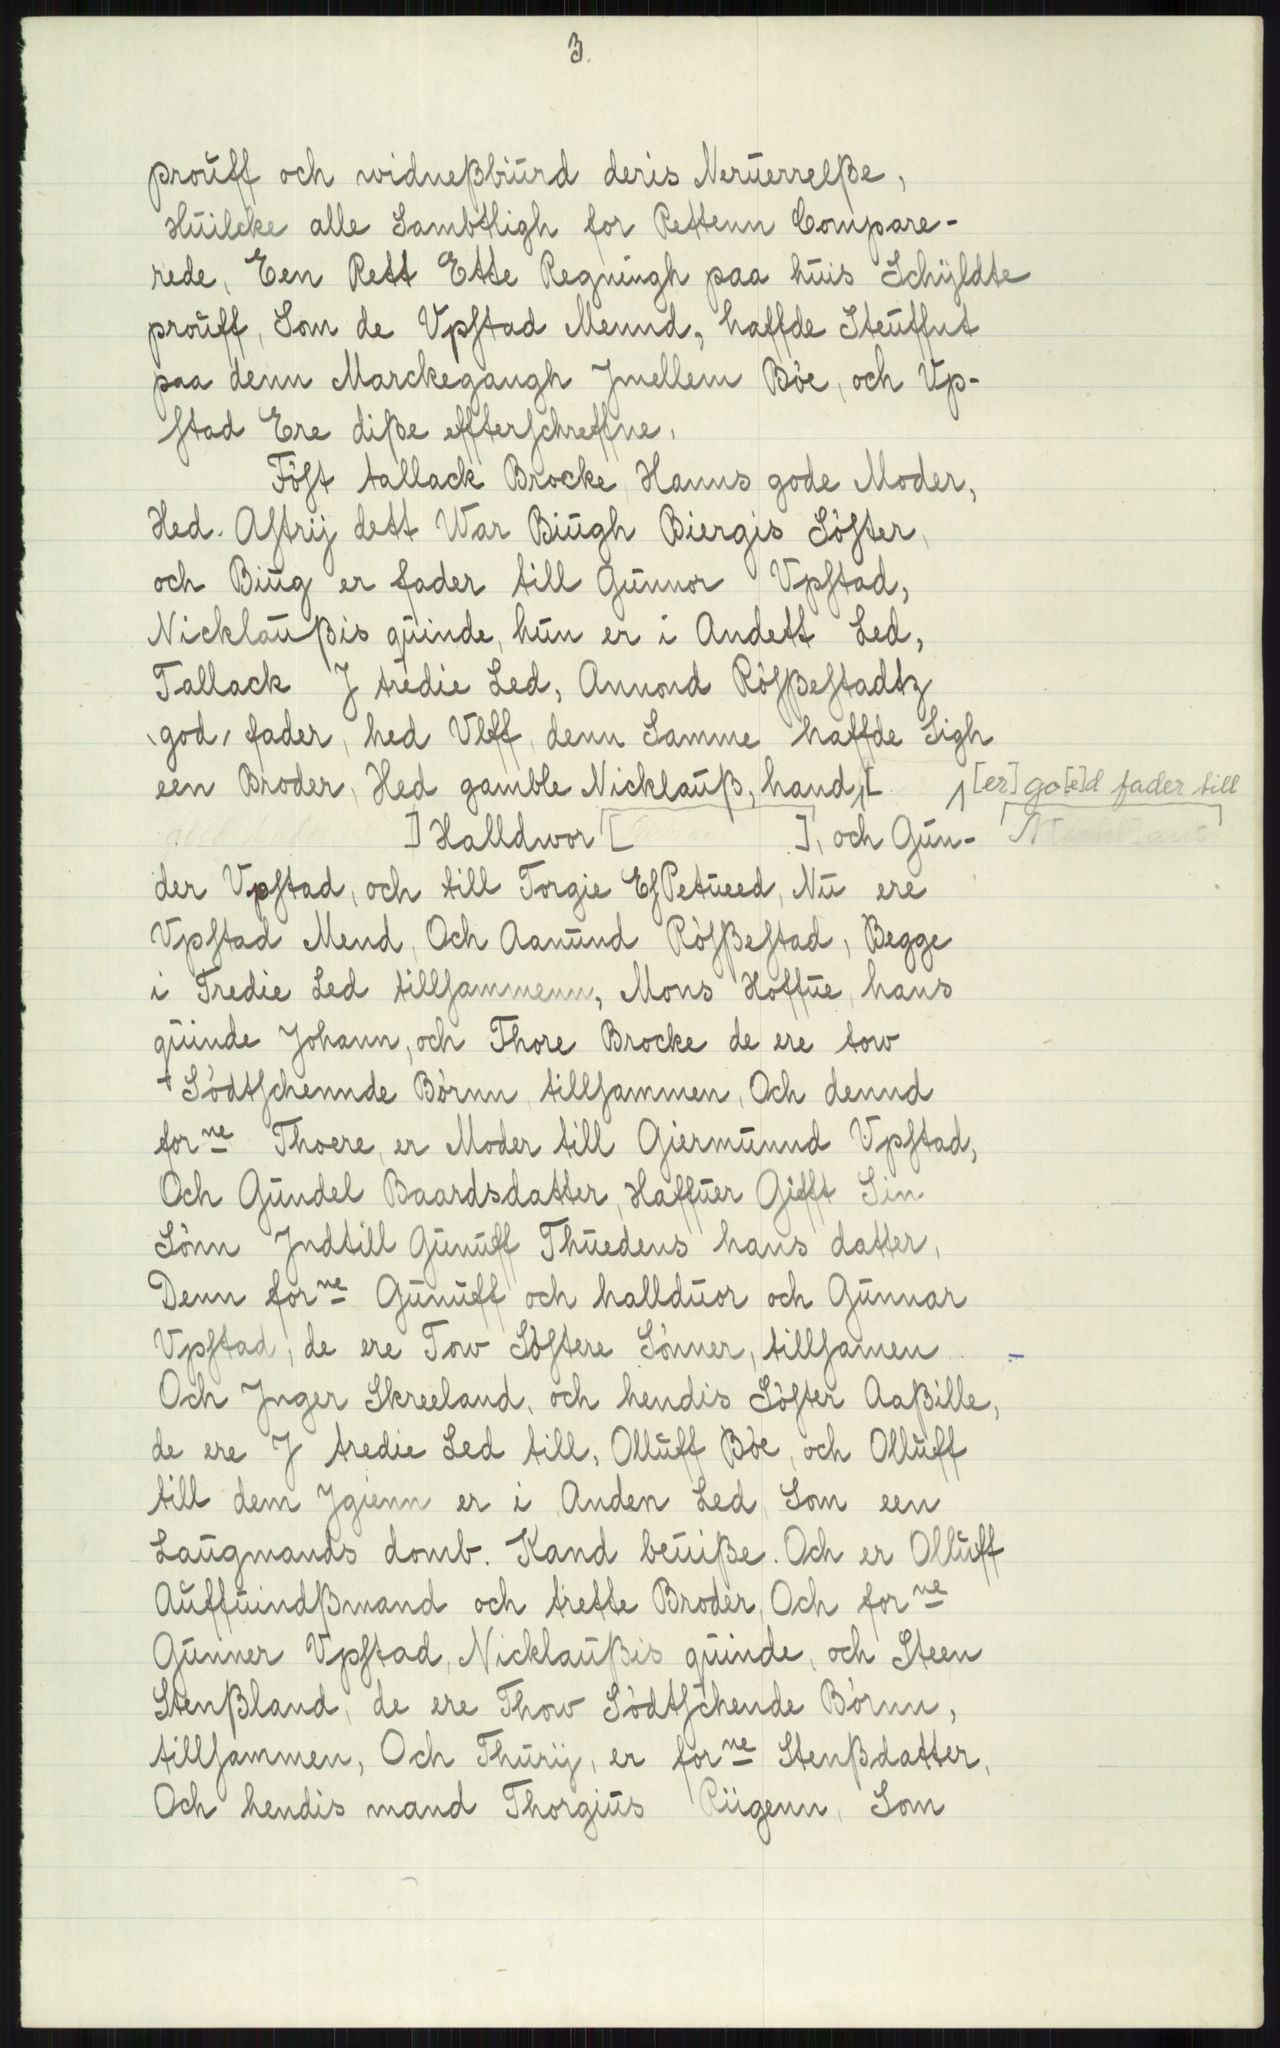 3.
proŭff och widneßbŭrd deris Nerŭerrelße,
Hŭilcke alle Sambtligh for Rettenn Compare-
rede, Een Rett Ette Regningh paa hŭis Schÿldte
proŭff, Som de Vpstad Mennd, haffde Steŭffnt
paa denn Marckegangh Jmellem Bòe, och Vp-
stad Ere diße effterschreffne,
Fòst tallack Brocke, Hanns gode Moder,
Hed. Astrij dett War Biŭgh Biergis Sòster,
och Biŭg er fader till Gŭnnor Vpstad,
Nicklaŭßis qŭinde, hŭn er i Andett Led,
Tallack J tredie Led, Annond Ròsßestadtz
god, fader, hed Vlff, denn Samme haffde Sigh
een Broder, Hed gamble Nicklaŭß, hand [ [er] go[e]d fader till
] Halldwor [ ], och Gŭn-
der Vpstad, och till Torgie EsPetŭeed, Nŭ ere
Vpstad Mend, Och Aanŭnd Ròsßestad, Begge
i Tredie Led tillsammenn, Mons Hoffŭe, hans
qŭinde Johann, och Thore Brocke de ere tow
+ Sòdtschennde Bòrnn, tillsammen, Och dennd
forne Thoere, er Moder till Giermŭnnd Vpstad,
Och Gŭndel Baardsdatter, Haffŭer Gifft Sin
Sònn Jndtill Gŭnŭff Thŭedens hans datter,
Denn forne Gŭnŭff och halldŭor och Gŭnnar
Vpstad, de ere Tow Sòstere Sònner, tillsamen
Och Jnger Skreeland, och hendis Sòster Aaßille,
de ere J tredie Led till, Ollŭff Bòe, och Ollŭff
till dem Jgienn er i Anden Led, Som een
Laŭgmands domb. Kand beŭiße. Och er Ollŭff
Aŭffŭindßmand och trette Broder, Och forne
Gŭnner Vpstad, Nicklaŭßis qŭinde, och Steen
Stenßland, de ere Thow Sòdtschende Bòrnn,
tillsammen, Och Thŭrij, er forne Stenßdatter,
Och hendis mand Thorgiŭs Riigenn, Som